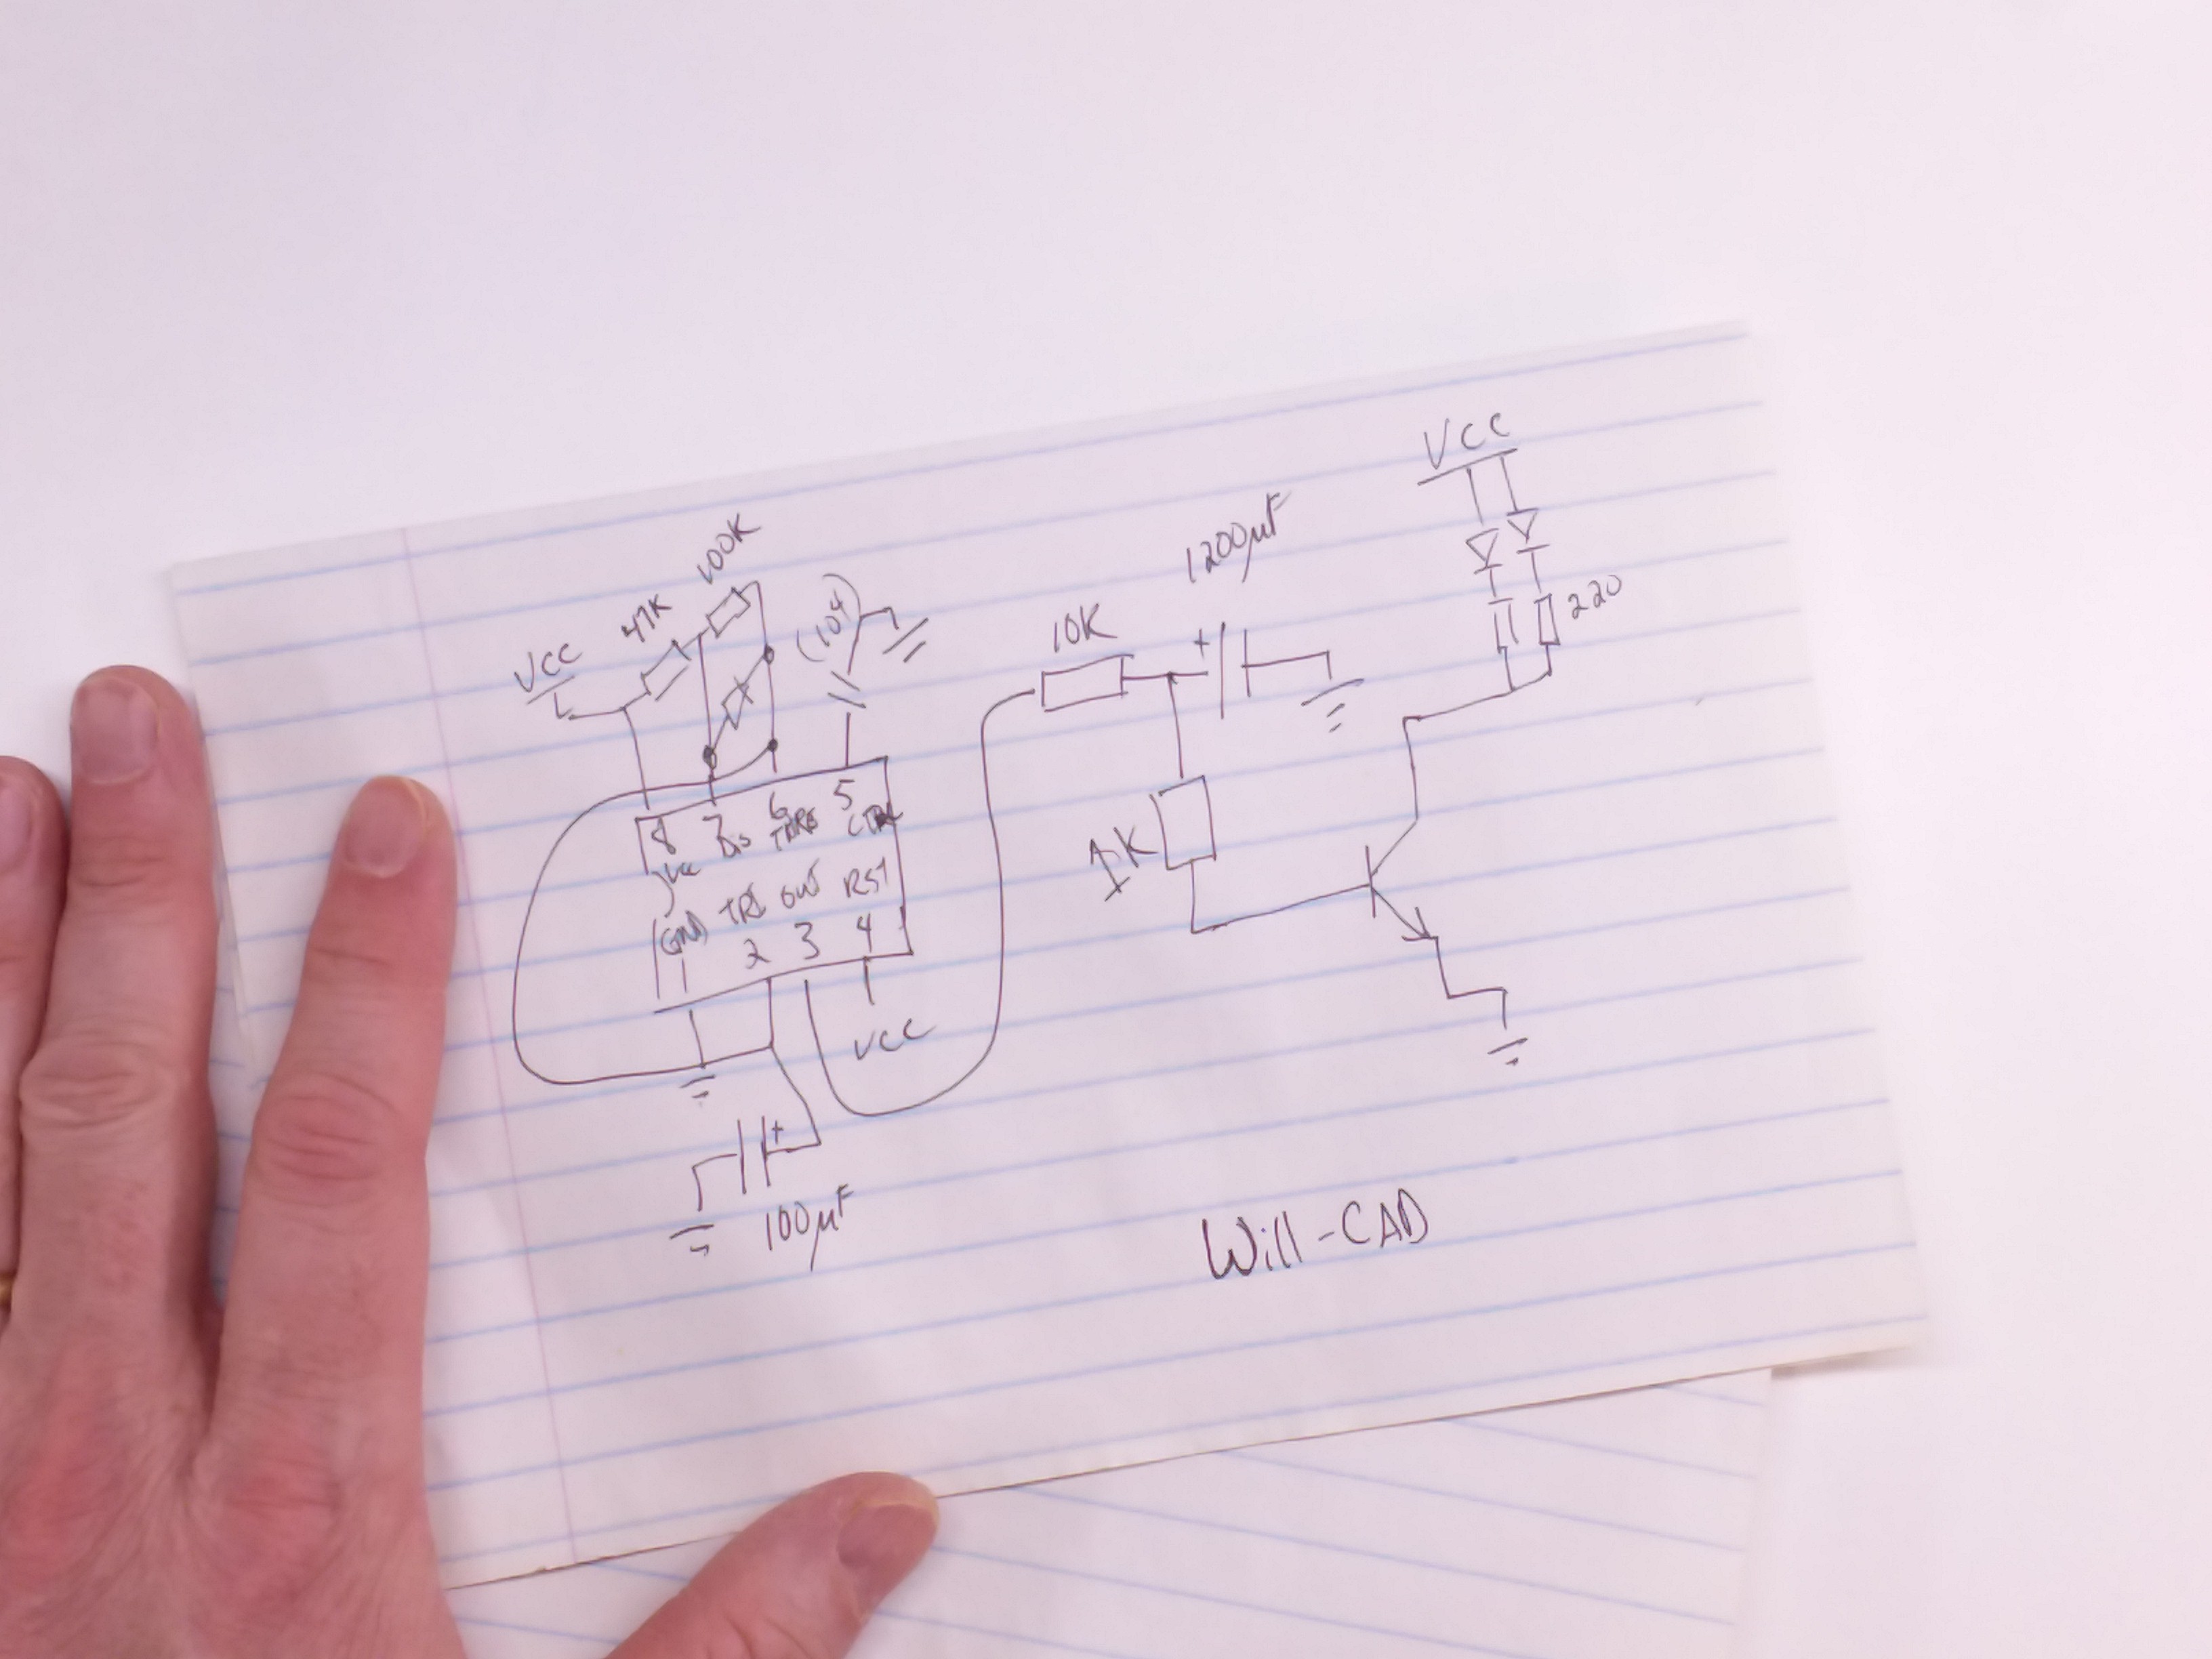 VCC
1200µF
100K
47K
(104)
220
10K
VCC
8 7 6 5
VCC DIS THRS CTRL
1K
GND TRI OUT RST
1 2 3 4
VCC
+
+
100µF
Will-CAD